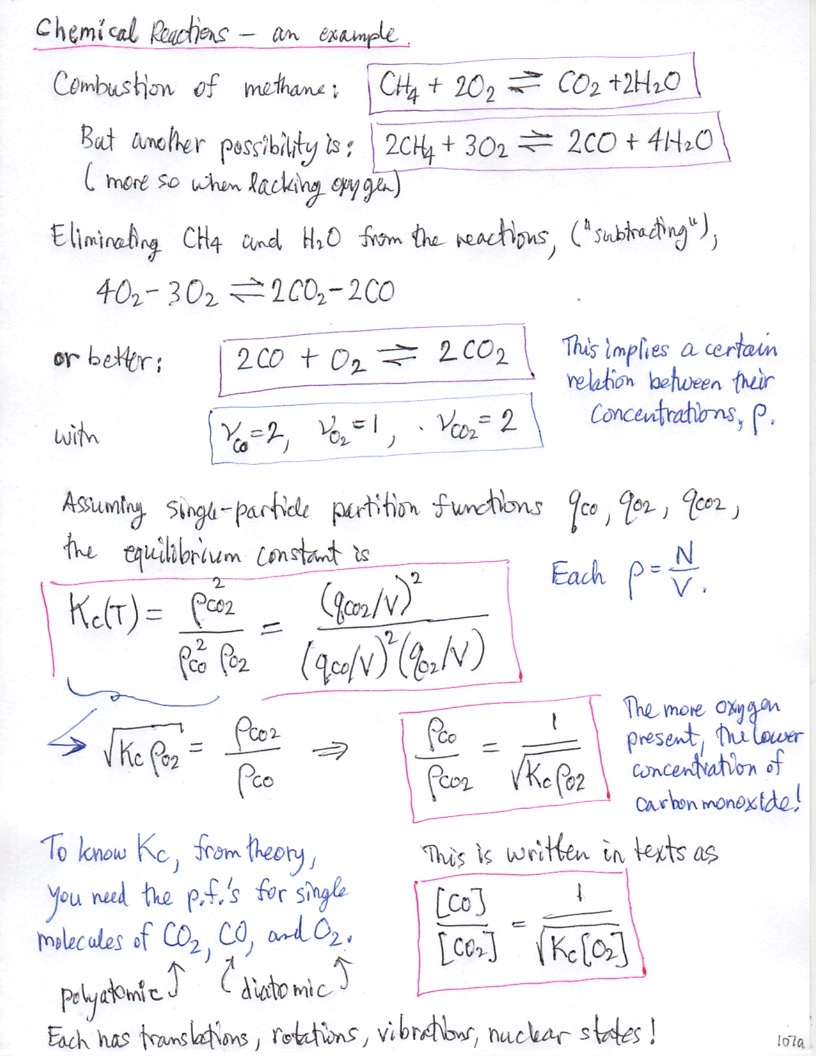 Chemical Reactions – an example.
Combustion of methane: CH₄ + 2O₂ ⇌ CO₂ + 2H₂O
But another possibility is: 2CH₄ + 3O₂ ⇌ 2CO + 4H₂O
(more so when lacking oxygen)
Eliminating CH4 and H2O from the reactions, ("subtracting"),
4O₂ - 3O₂ ⇌ 2CO₂ - 2CO
or better: 2CO + O₂ ⇌ 2CO₂
This implies a certain
relation between their
concentrations, ρ.
with ν_CO = 2, ν_O₂ = 1, ν_CO₂ = 2
Assuming single-particle partition functions q_CO, q_O2, q_CO2,
the equilibrium constant is
Each ρ = N/V.
Kc(T) = ρ_CO2² / (ρ_CO² ρ_O2) = (q_CO2/V)² / ((q_CO/V)² (q_O2/V))
√(Kc ρ_O2) = ρ_CO2 / ρ_CO ⇒ ρ_CO / ρ_CO2 = 1 / √(Kc ρ_O2)
The more oxygen
present, the lower
concentration of
carbon monoxide!
To know Kc, from theory,
you need the p.f.'s for single
molecules of CO₂, CO, and O₂.
polyatomic ↑ ( diatomic ↑
This is written in texts as
[CO] / [CO₂] = 1 / √(Kc[O₂])
Each has translations, rotations, vibrations, nuclear states!
101a